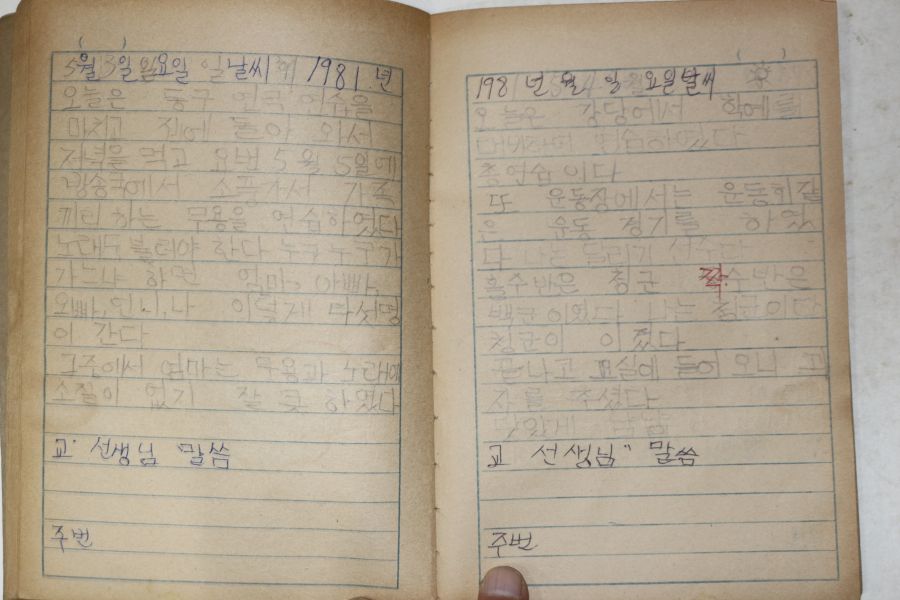 5월 3일 일요일 날씨 1981.년
오늘은 동구 연극 연습을
마치고 집에 돌아 와서
저녁을 먹고 요번 5월 5일에
에서 소풍가서 가족
끼리 하는 무용을 연습하였다
노래도 불러야 한다 누구누구가
가느냐 하면 엄마, 아빠,
오빠, 언니, 나 이렇게 다섯명
이 간다
그중에서 엄마는 무용과 노래에
소질이 없기 잘 못 하였다
교· 선생님 말씀
주번
198 년 월 일 요일 날씨
오늘은 강당에서 학예회
총연습이다
또 운동장에서는 운동회같
은 운동 경기를 하였
다 나는 달리기
홀수반은 청군 짝수반은
백군이였다 나는 청군이다
청군이 이겼다
끝나고 교실에 들어 오니 과
자를 주셨다
맛있게
교 선생님" 말씀
주번